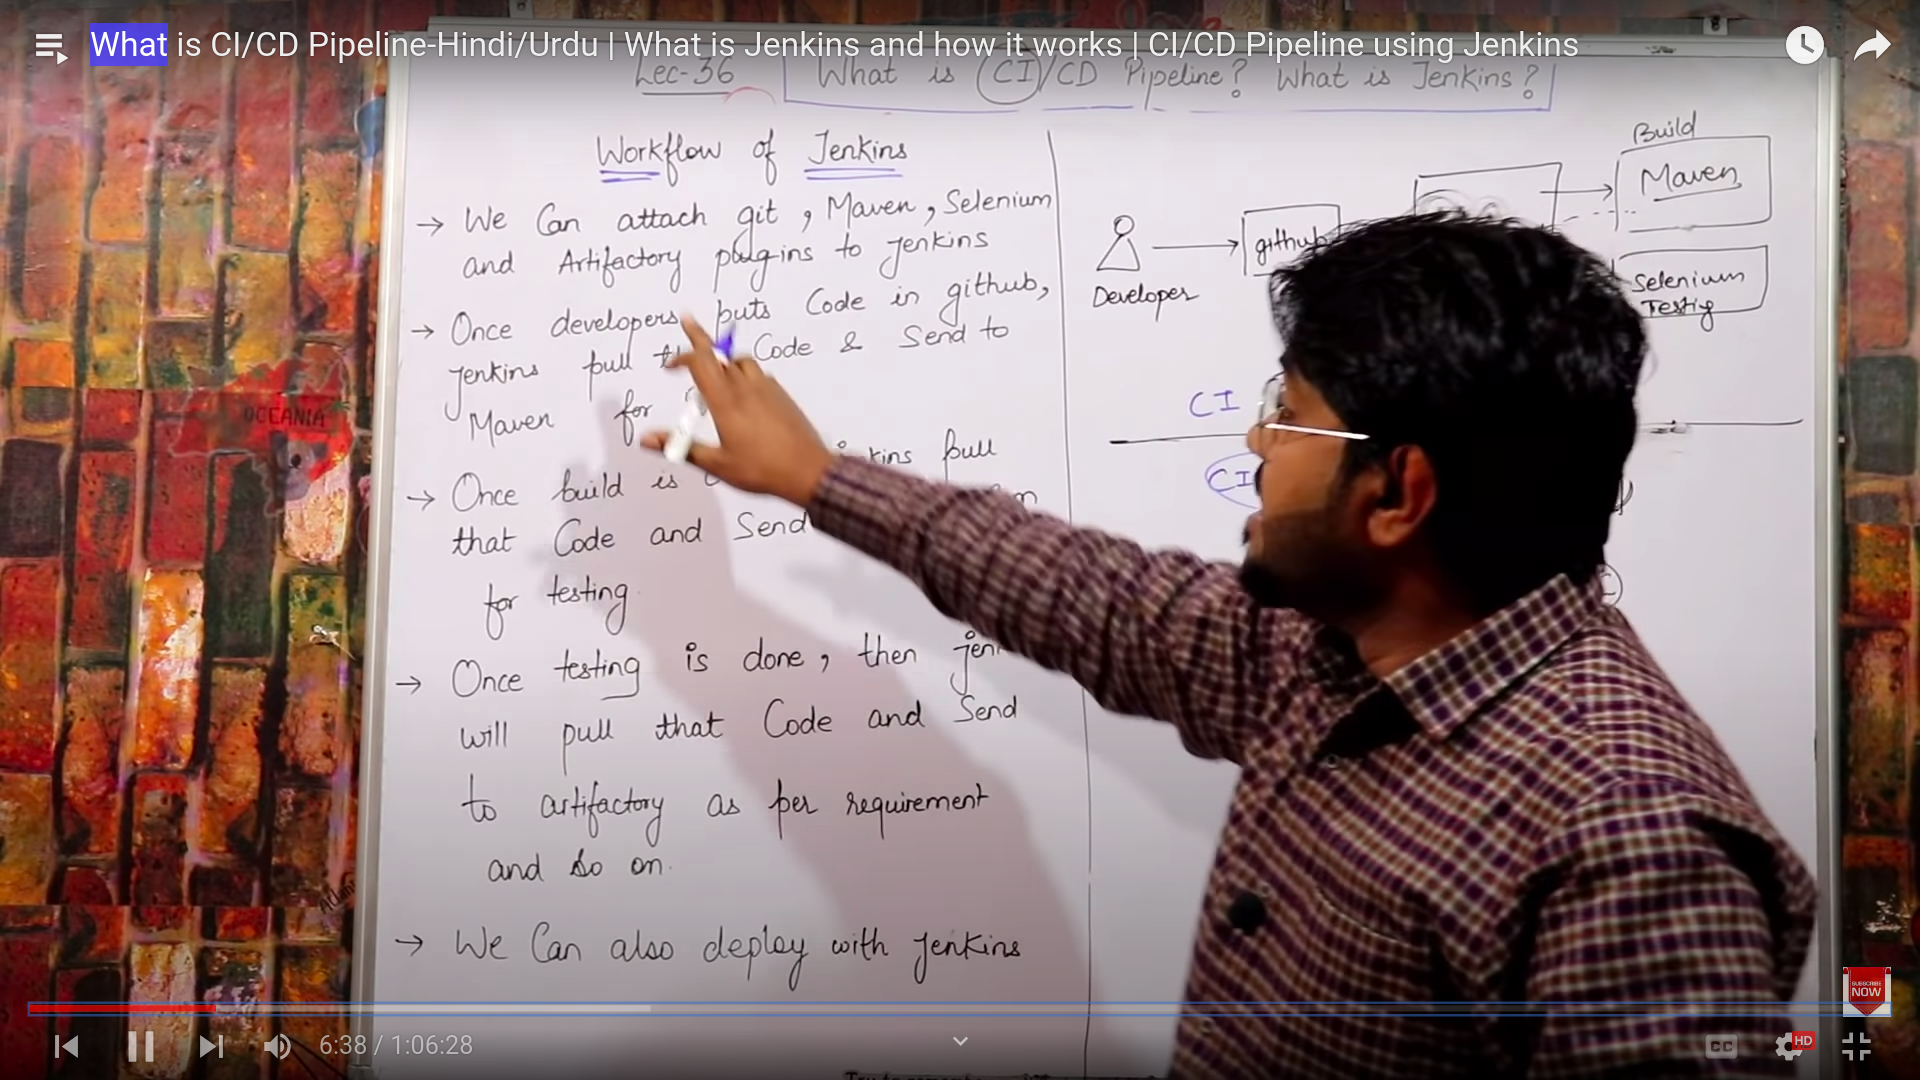 What is CI/CD Pipeline-Hindi/Urdu | What is Jenkins and how it works | CI/CD Pipeline using Jenkins
Lec-36
What is CI/CD Pipeline? What is Jenkins?
Workflow of Jenkins
→ We Can attach git, Maven, Selenium
and Artifactory plugins to Jenkins
→ Once developers puts Code in github,
Jenkins pull Code & Send to
Maven for
→ Once build is pull
that Code and Send
for testing
→ Once testing is done, then
will pull that Code and Send
to artifactory as per requirement
and so on.
→ We Can also deploy with Jenkins
Developer
github
Build
Maven
Selenium
Testig
CI
CI
OCEANIA
SUBSCRIBE
NOW
6:38 / 1:06:28
CC
HD